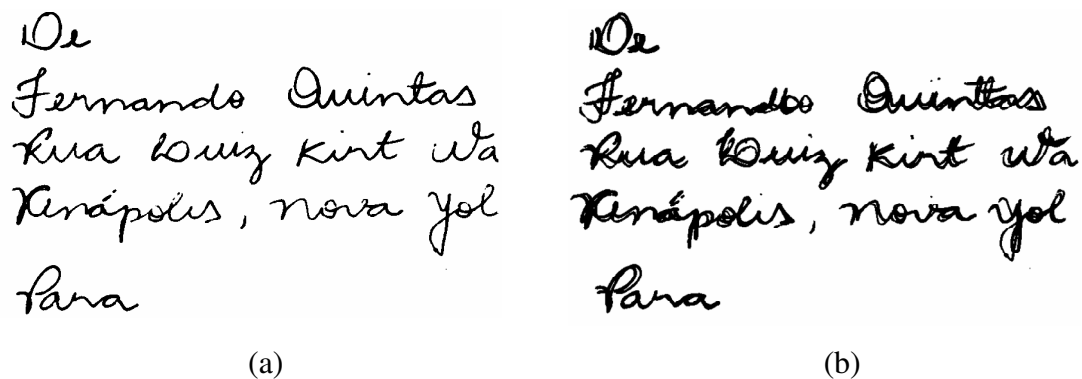 De
Fernando Quintas
Rua Luiz Kirt Wa
Xenápolis, nova yol
Para
(a)
De
Fernando Quintas
Rua Luiz Kirt Wa
Xenápolis, nova yol
Para
(b)